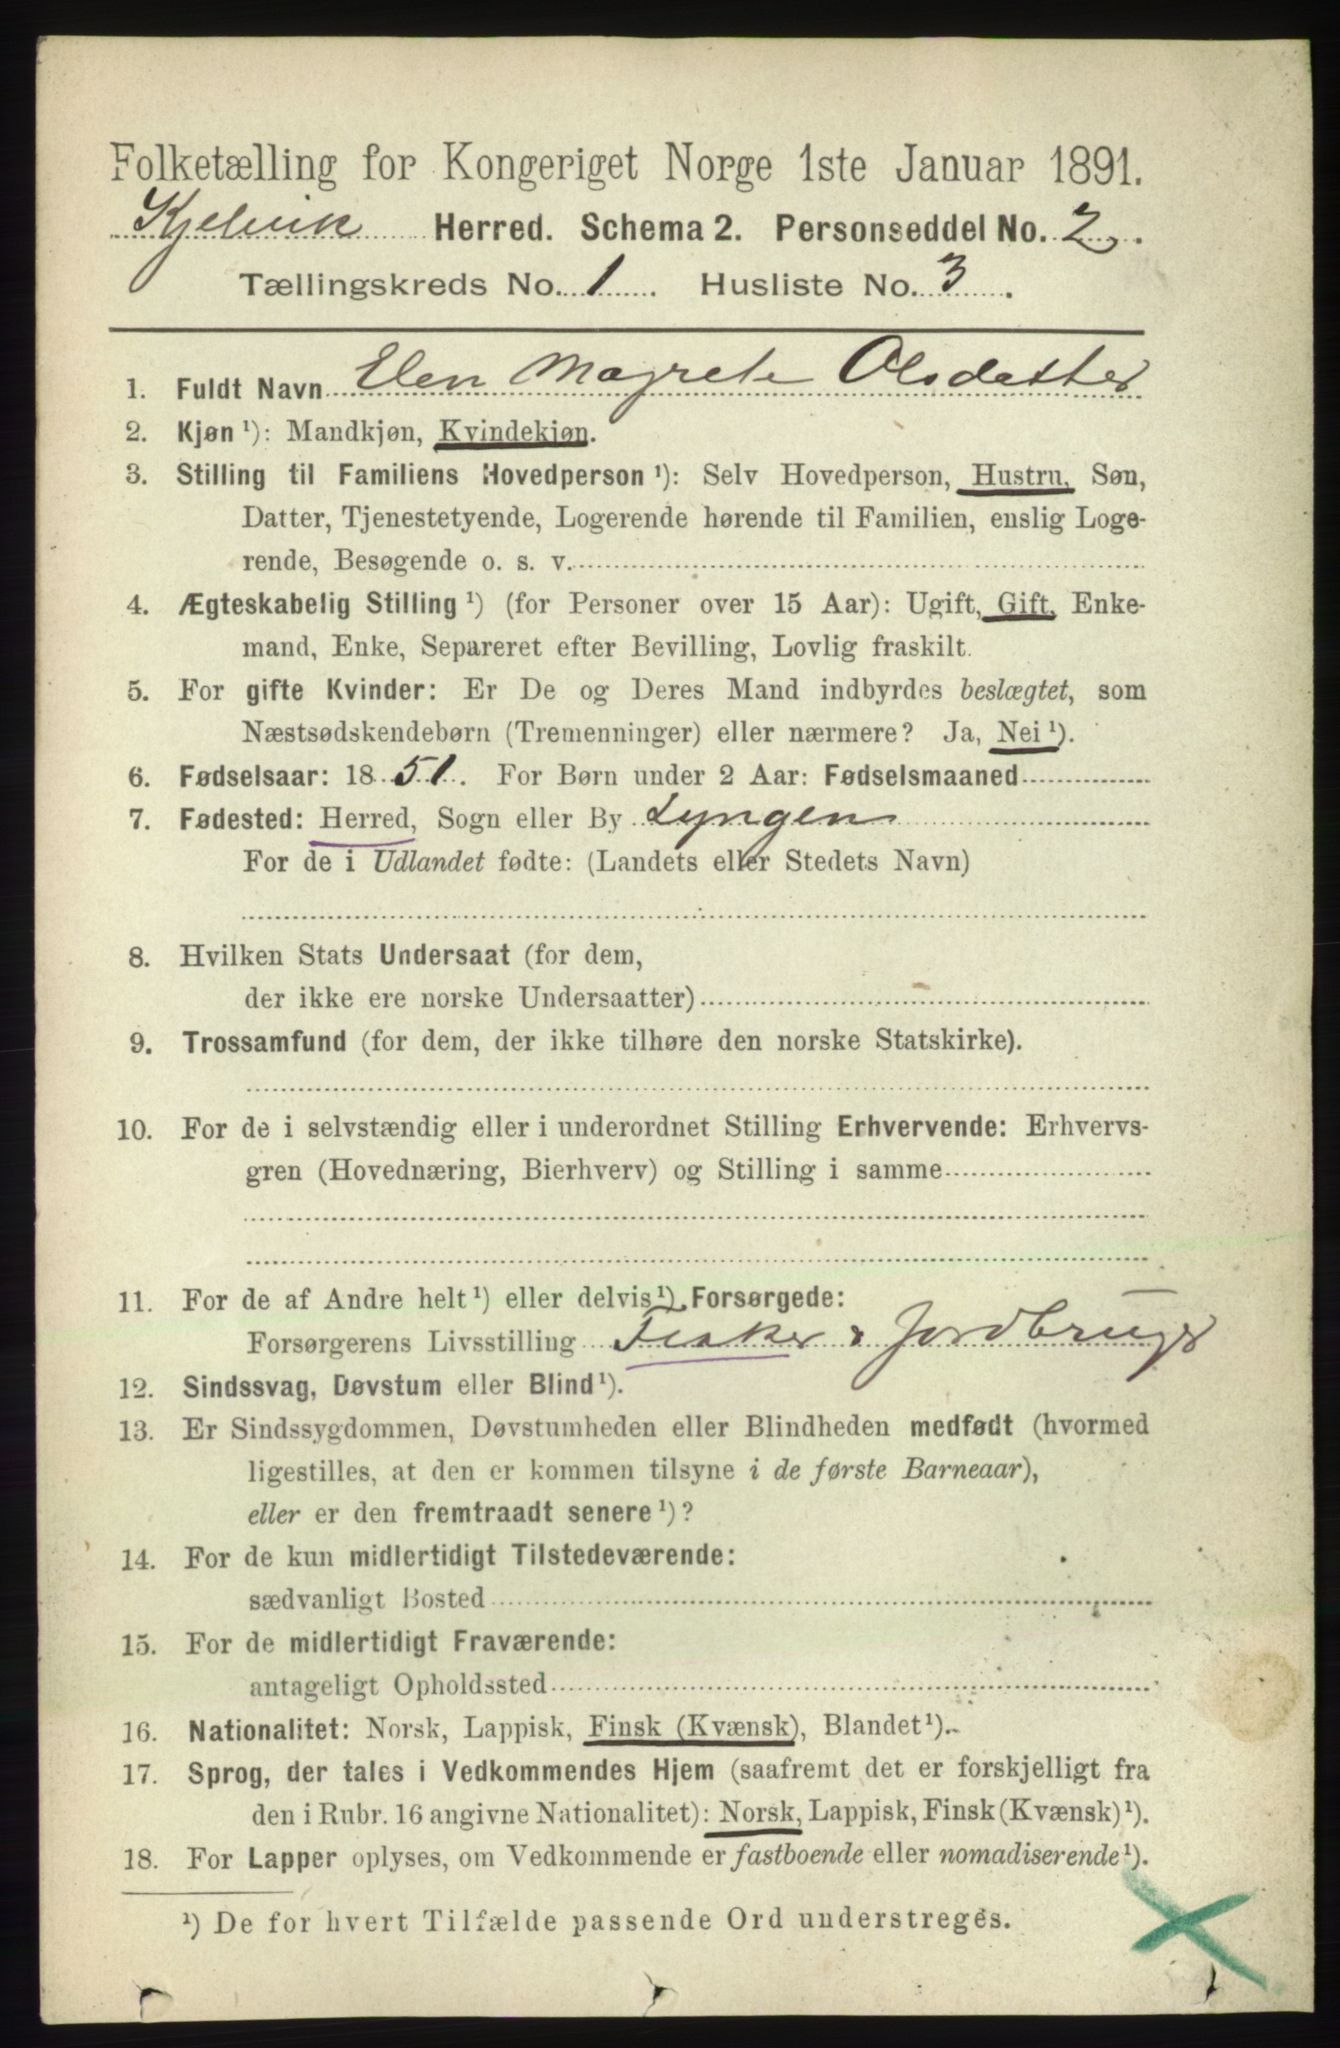 Folketælling for Kongeriget Norge 1ste Januar 1891.
Kjelvik Herred. Schema 2. Personseddel No. 2.
Tællingskreds No. 1. Husliste No. 3.
1. Fuldt Navn Elen Magrete Olsdatter
2. Kjøn ¹): Mandkjøn, Kvindekjøn.
3. Stilling til Familiens Hovedperson ¹): Selv Hovedperson, Hustru, Søn,
Datter, Tjenestetyende, Logerende hørende til Familien, enslig Loge-
rende, Besøgende o. s. v.
4. Ægteskabelig Stilling ¹) (for Personer over 15 Aar): Ugift, Gift, Enke-
mand, Enke, Separeret efter Bevilling, Lovlig fraskilt.
5. For gifte Kvinder: Er De og Deres Mand indbyrdes beslægtet, som
Næstsødskendebørn (Tremenninger) eller nærmere? Ja, Nei ¹).
6. Fødselsaar: 1851. For Børn under 2 Aar: Fødselsmaaned
7. Fødested: Herred, Sogn eller By Lyngen
For de i Udlandet fødte: (Landets eller Stedets Navn)
8. Hvilken Stats Undersaat (for dem,
der ikke ere norske Undersaatter)
9. Trossamfund (for dem, der ikke tilhøre den norske Statskirke).
10. For de i selvstændig eller i underordnet Stilling Erhvervende: Erhvervs-
gren (Hovednæring, Bierhverv) og Stilling i samme
11. For de af Andre helt ¹) eller delvis ¹) Forsørgede:
Forsørgerens Livsstilling Fisker & Jordbruger
12. Sindssvag, Døvstum eller Blind ¹).
13. Er Sindssygdommen, Døvstumheden eller Blindheden medfødt (hvormed
ligestilles, at den er kommen tilsyne i de første Barneaar),
eller er den fremtraadt senere ¹)?
14. For de kun midlertidigt Tilstedeværende:
sædvanligt Bosted
15. For de midlertidigt Fraværende:
antageligt Opholdssted
16. Nationalitet: Norsk, Lappisk, Finsk (Kvænsk), Blandet ¹).
17. Sprog, der tales i Vedkommendes Hjem (saafremt det er forskjelligt fra
den i Rubr. 16 angivne Nationalitet): Norsk, Lappisk, Finsk (Kvænsk) ¹).
18. For Lapper oplyses, om Vedkommende er fastboende eller nomadiserende ¹).
¹) De for hvert Tilfælde passende Ord understreges.